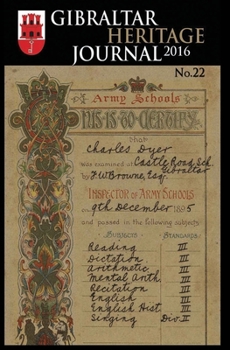 GIBRALTAR
HERITAGE
JOURNAL 2016
No.22
Army Schools
THIS IS TO CERTIFY,
that
Charles Dyer
was examined at Castle Road Sch.
Gibraltar
by F.W. Browne, Esq.
INSPECTOR OF ARMY SCHOOLS
on 9th December 1895
and passed in the following subjects
SUBJECTS STANDARDS
Reading III
Dictation III
Arithmetic III
Mental Arith. III
Recitation III
English III
English Hist. III
Singing Div. II